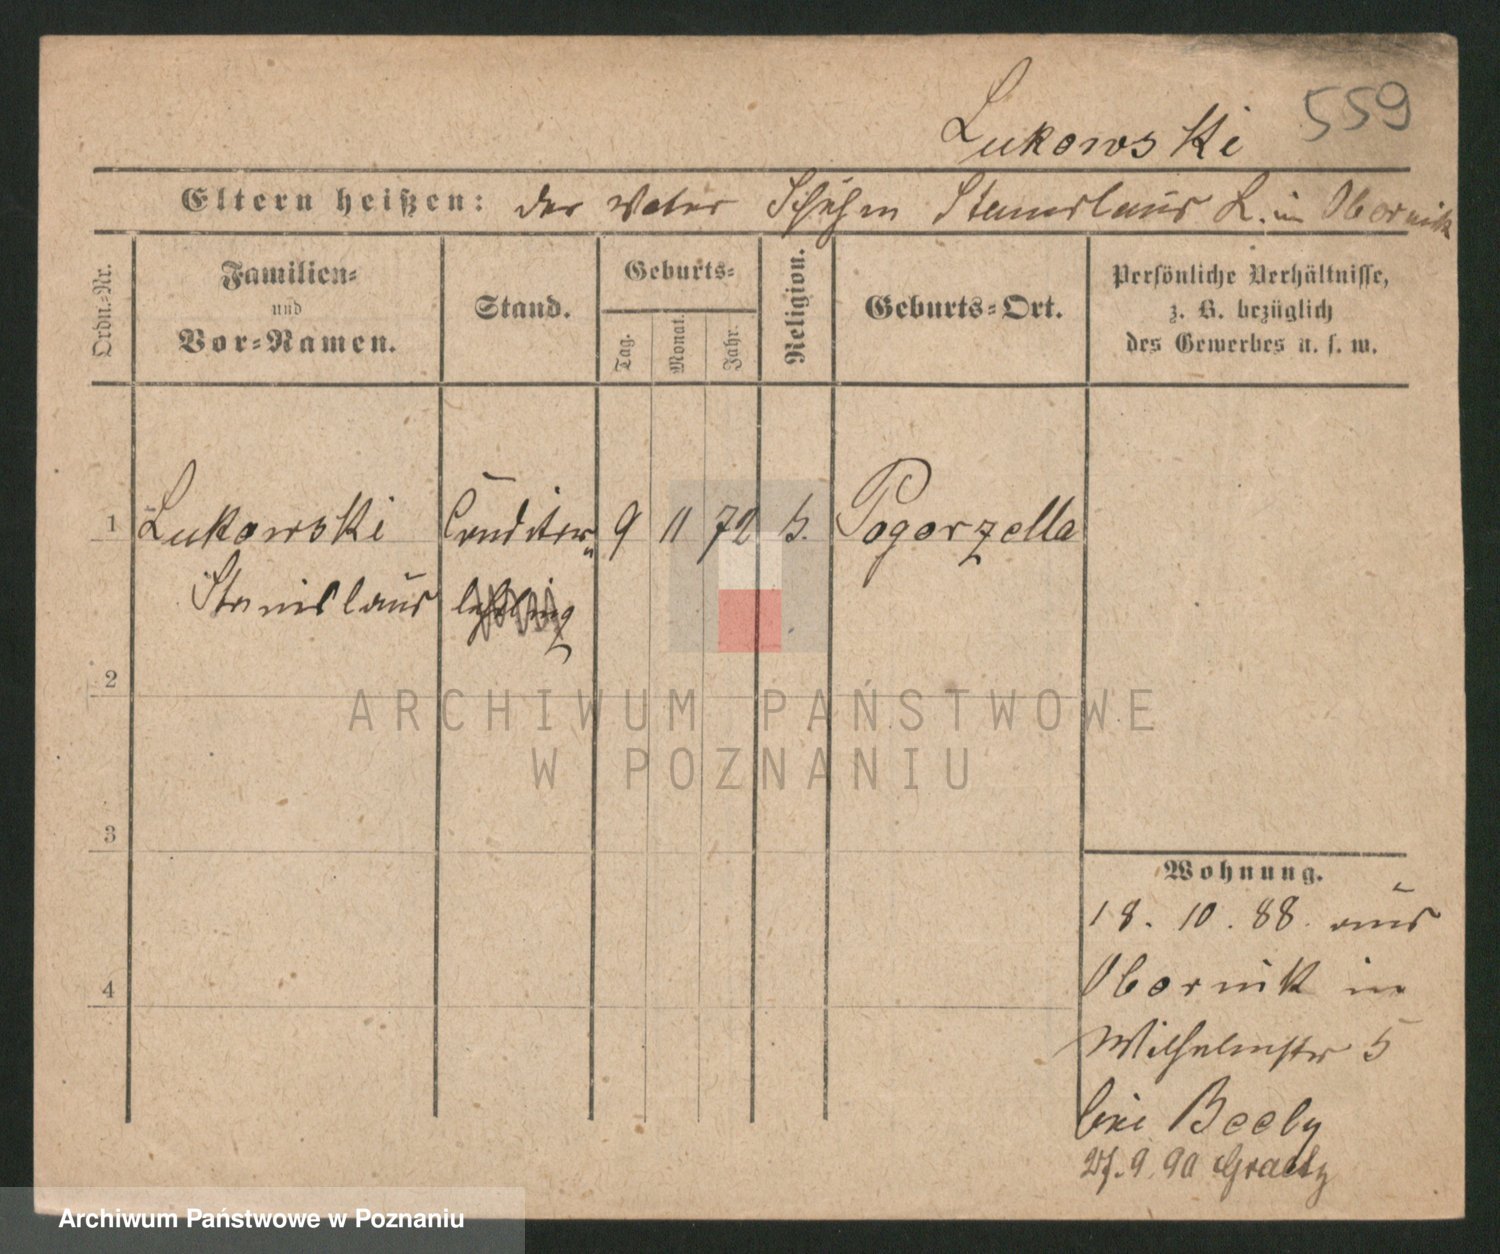 559
Lukowski
Eltern heißen: der Vater Stanislaus L. in Obornik
Ordn.-Nr.
Familien-
und
Vor-Namen.
Stand.
Geburts-
Tag.
Monat.
Jahr.
Religion.
Geburts-Ort.
Persönliche Verhältnisse,
z. B. bezüglich
des Gewerbes u. s. w.
1 Lukowski Conditor- 9 11 72 k. Pogorzella
Stanislaus lehrling
2
3
4
Wohnung.
18. 10. 88. aus
Obornik in
Wilhelmstr 5
bei Beely
27. 9. 90 Graetz
ARCHIWUM PAŃSTWOWE
W POZNANIU
Archiwum Państwowe w Poznaniu